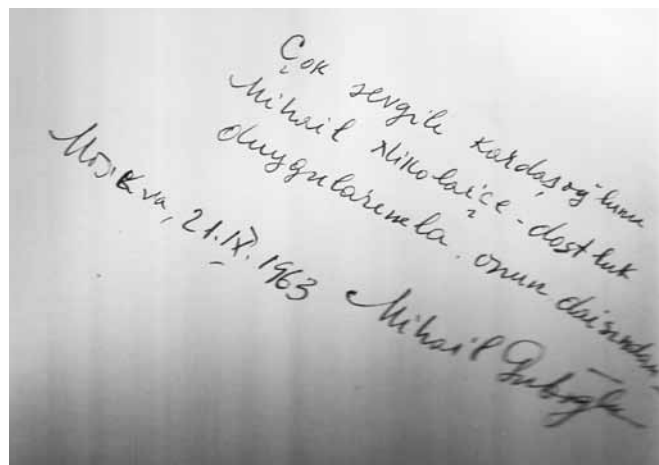 Çok sevgili Kardaşoğlumu
Mihail Nikolaiçe - dostluk
duygularımla. onun daisından -
Moskva, 21.IX.1963
Mihail Guboglu